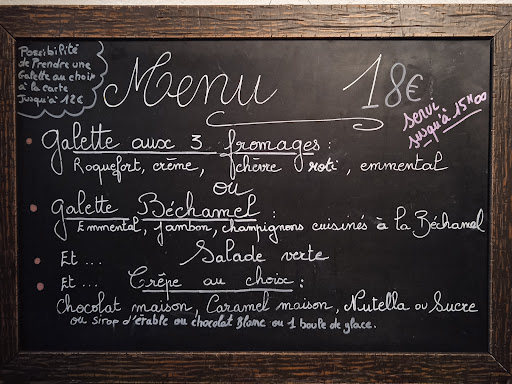 Possibilité
de Prendre une
Galette au choix
à la carte
Jusqu'à 12€
Menu 18€
servi
jusqu'à 15H00
galette aux 3 fromages :
Roquefort, crème, chèvre roti, emmental
ou
galette Béchamel :
Emmental, jambon, champignons cuisinés à la Béchamel
Et ... Salade verte
Et ... Crêpe au choix :
Chocolat maison, Caramel maison, Nutella ou Sucre
ou sirop d'érable ou chocolat Blanc ou 1 boule de glace.